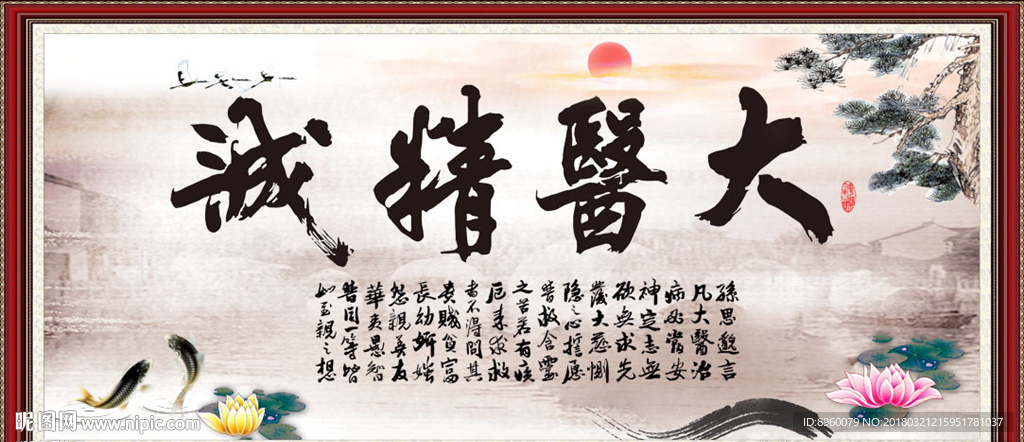 大醫精誠
孫思邈言
凡大醫治
病必當安
神定志無
欲無求先
發大慈惻
隱之心誓愿
普救含靈
之苦若有疾
厄来求救
者不得問其
貴賤貧富
長幼妍媸
怨親善友
華夷愚智
普同一等皆
如至親之想
昵图网 www.nipic.com
ID:8960079 NO:20180321215951781037